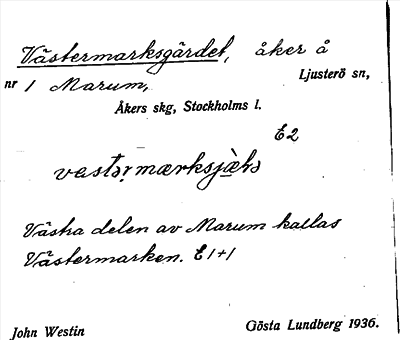 Västermarksgärdet, åker å
nr 1 Marum, Ljusterö sn,
Åkers skg, Stockholms l.
E2
Västra delen av Marum kallas
Västermarken. E1+1
John Westin Gösta Lundberg 1936.